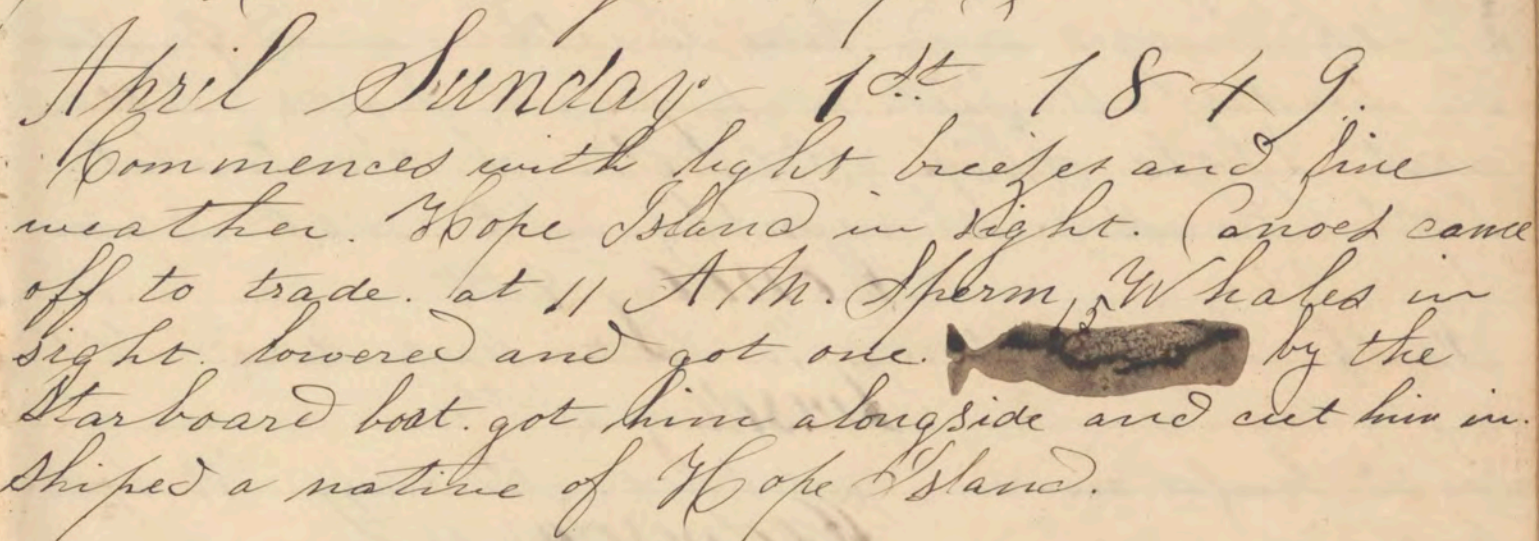 April Sunday 1st 1849.
Commences with light breezes and fine
weather. Hope Island in sight. Canoes came
off to trade. at 11 A.M. Sperm Whales in
sight. lowered and got one. 15 by the
Starboard boat. got him alongside and cut him in.
shiped a native of Hope Island.